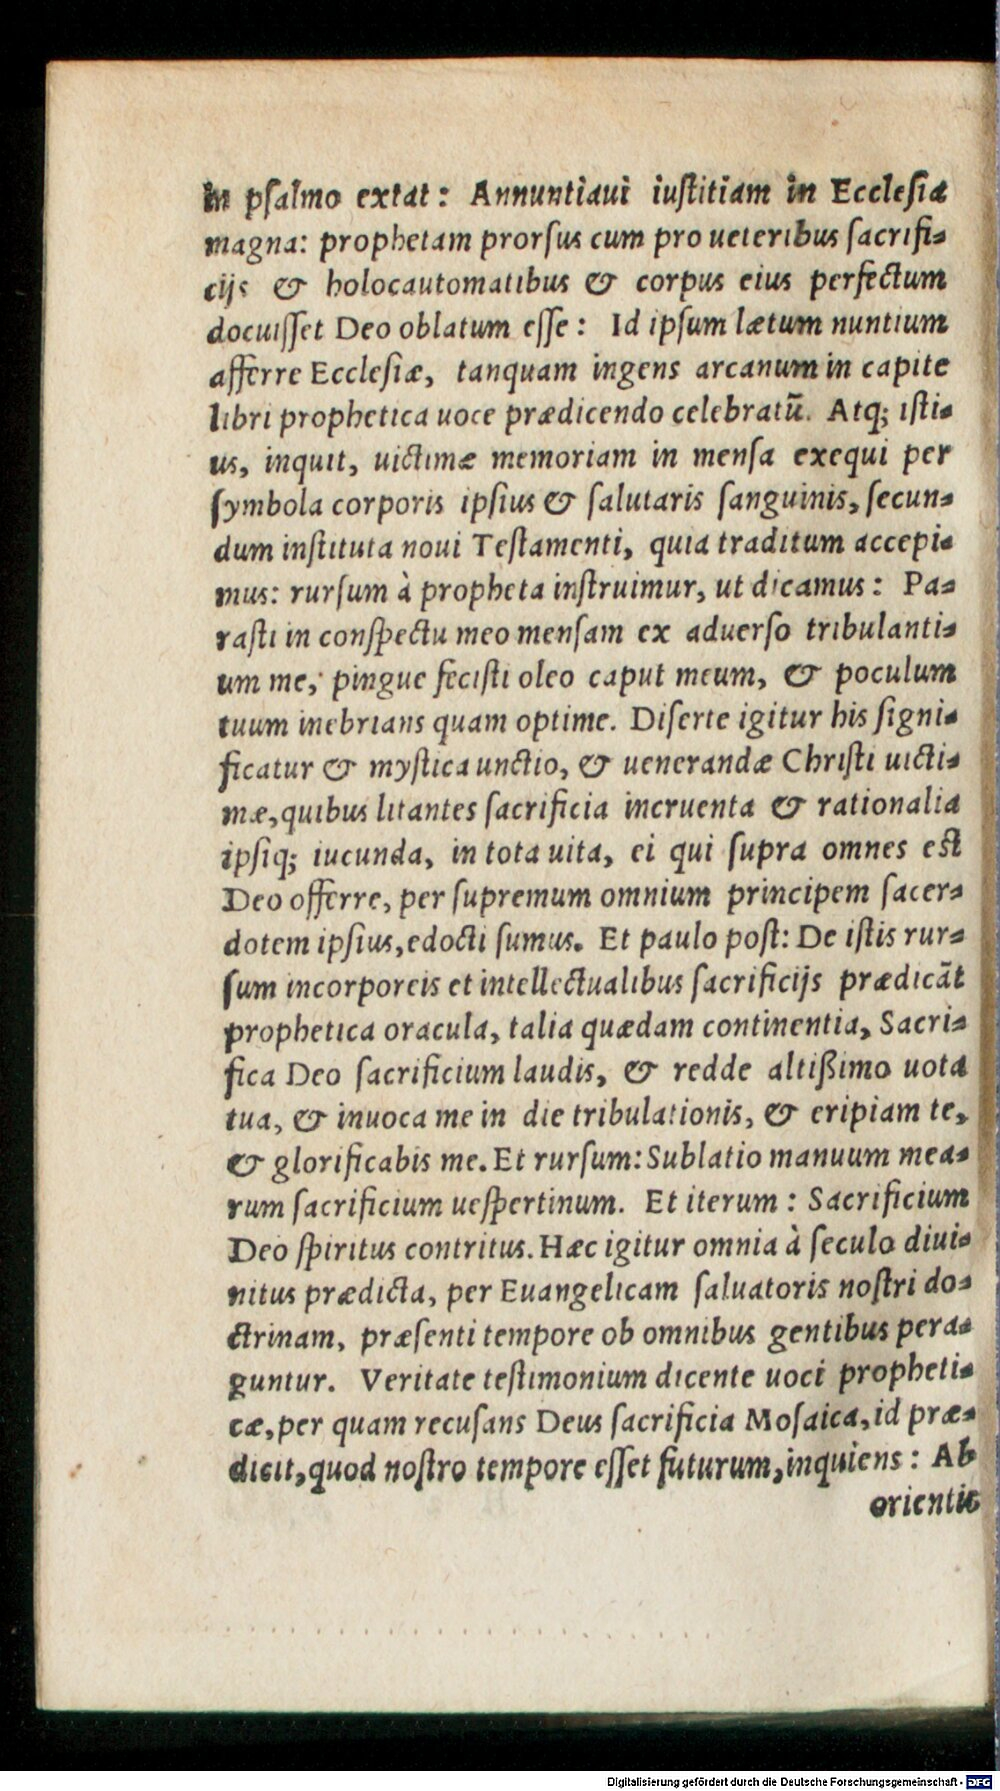 in psalmo extat: Annuntiaui iustitiam in Ecclesia
magna: prophetam prorsus cum pro ueteribus sacrifi-
cijs & holocautomatibus & corpus eius perfectum
docuisset Deo oblatum esse: Id ipsum lætum nuntium
afferre Ecclesiæ, tanquam ingens arcanum in capite
libri prophetica uoce prædicendo celebratũ. Atq; isti-
us, inquit, uictimæ memoriam in mensa exequi per
symbola corporis ipsius & salutaris sanguinis, secun-
dum instituta noui Testamenti, quia traditum accepi-
mus: rursum à propheta instruimur, ut dicamus: Pa-
rasti in conspectu meo mensam ex aduerso tribulanti-
um me, pingue fecisti oleo caput meum, & poculum
tuum inebrians quam optime. Diserte igitur his signi-
ficatur & mystica unctio, & uenerandæ Christi uicti-
mæ, quibus litantes sacrificia incruenta & rationalia
ipsiq; iucunda, in tota uita, ei qui supra omnes est
Deo offerre, per supremum omnium principem sacer-
dotem ipsius, edocti sumus. Et paulo post: De istis rur-
sum incorporeis et intellectualibus sacrificijs prædicãt
prophetica oracula, talia quædam continentia, Sacri-
fica Deo sacrificium laudis, & redde altißimo uota
tua, & inuoca me in die tribulationis, & eripiam te,
& glorificabis me. Et rursum: Sublatio manuum mea-
rum sacrificium uespertinum. Et iterum: Sacrificium
Deo spiritus contritus. Hæc igitur omnia à seculo diui-
nitus prædicta, per Euangelicam saluatoris nostri do-
ctrinam, præsenti tempore ob omnibus gentibus pera-
guntur. Veritate testimonium dicente uoci propheti-
cæ, per quam recusans Deus sacrificia Mosaica, id præ-
dicit, quod nostro tempore esset futurum, inquiens: Ab
orientis
Digitalisierung gefördert durch die Deutsche Forschungsgemeinschaft - DFG